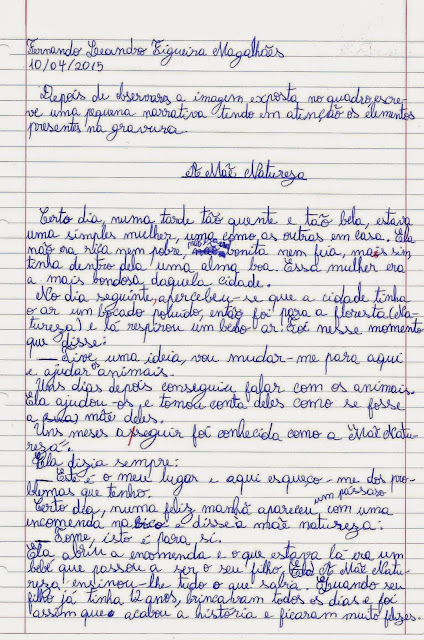 Fernando Leandro Figueira Magalhães
10/04/2015
Depois de observares a imagem exposta no quadro, escre-
ve uma pequena narrativa tendo em atenção os elementos
presentes na gravura.
A Mãe Natureza
Certo dia, numa tarde tão quente e tão bela, estava
uma simples mulher, uma como as outras em casa. Ela
não era rica nem pobre, não era bonita nem feia, mas sim
tinha dentro dela uma alma boa. Essa mulher era
a mais bondosa daquela cidade.
No dia seguinte, apercebeu-se que a cidade tinha
o ar um bocado poluido, então foi para a floresta (Na-
tureza) e lá respirou um belo ar! Foi nesse momento
que disse:
— Tive, uma ideia, vou mudar-me para aqui
e ajudar os animais.
Uns dias depois conseguiu falar com os animais.
Ela ajudou-os, e tomou conta deles como se fosse
a (sua) mãe deles.
Uns meses a seguir foi conhecida como a "Mãe Natu-
reza".
Ela disia sempre:
— Este é o meu lugar e aqui esqueço-me dos pro-
blemas que tenho.
Certo dia, numa feliz manhã apareceu um pássaro com uma
encomenda no bico e disse à mãe natureza:
— Tome, isto é para si.
Ela abriu a encomenda e o que estava lá era um
bébé que passou a ser o seu filho, Ela A Mãe Natu-
reza ensinou-lhe tudo o que sabia. Quando seu
filho já tinha 12 anos, brincavam todos os dias e foi
assim que acabou a história e ficaram muito felizes.